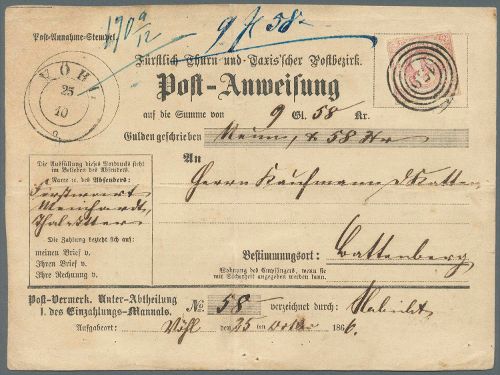 Post-Annahme-Stempel.
9 f 58
VÖHL
25
10
Fürstlich Thurn und Taxis'scher Postbezirk.
Post-Anweisung
auf die Summe von 9 Gl. 58 Kr.
Gulden geschrieben Neun, & 58 Kr
An
Herrn Kaufmann
Die Ausfüllung dieses Vordrucks steht
im Belieben des Absenders.
Name ꝛc. des Absenders:
Forstwart
Thalitter
Die Zahlung bezieht sich auf:
meinen Brief v.
Ihren Brief v.
Ihre Rechnung v.
Bestimmungsort: Battenberg
Wohnung des Empfängers, wenn sie
mit Sicherheit angegeben werden kann.
Post-Vermerk. Unter-Abtheilung
I. des Einzahlungs-Mannals.
No 58 verzeichnet durch: Habicht
Aufgabeort: Vöhl den 25 ten October 1866.